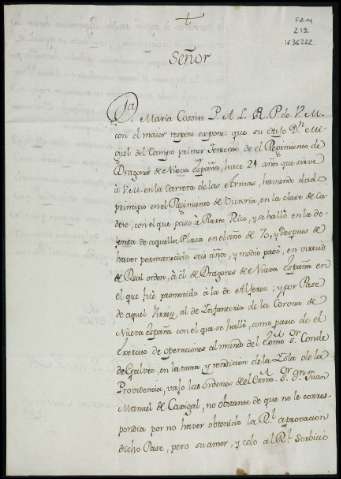 Señor
Da. Maria Cosam P. A L. R. P. de V. M.
con el maior respeto expone: que su difto Dn. Mi-
guel del Campo primer Theniente de el Regimiento de
Dragones de Nueva España, hace 21 años que sirve
à V. M. en la carrera de las Armas, haviendo dado
principio en el Regimiento de Victoria, en la clase de Ca-
dete, con el que pasò à Puerto Rico, y se hallò en la de-
fensa de aquella Plaza en el año de 70, y despues de
haver permanecido seis años, y medio pasò, en virtud
de Real orden, à el de Dragones de Nueva España en
el que fuè promovido à la de Alferez; y por Pase
de aquel Virrey, al de Infanteria de la Corona de
Nueva España con el qe. se hallò, como parte de el
Exercito de operaciones al mando del Exmo. Sr. Conde
de Galvez, en la toma y rendicion de la Isla de la
Providencia, vajo las órdenes del Exmo. Sr. Dn. Juan
Manuel de Caxigal, no obstante de que no le corres-
pondia por no haver obtenido la Rl. aprovacion
dicho Pase, pero su amor, y celo al Rl. Servicio